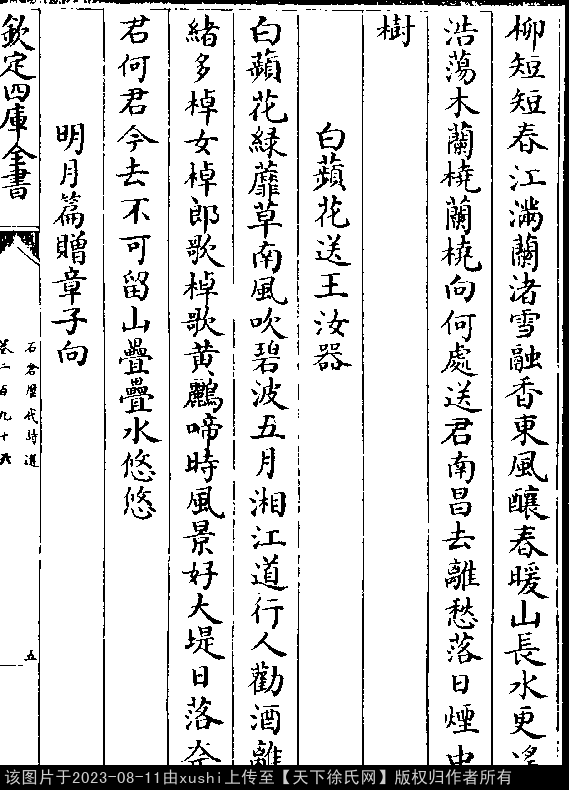 柳短短春江滿蘭渚雪融香東風釀春暖山長水更
浩蕩木蘭橈蘭橈向何處送君南昌去離愁落日煙中
樹
白蘋花送王汝器
白蘋花綠蘼草南風吹碧波五月湘江道行人勸酒離
緒多棹女棹郎歌棹歌黄鸝啼時風景好大堤日落
君何君今去不可留山疊疊水悠悠
明月篇贈章子向
欽定四庫全書
石倉歷代詩選
卷二百九十六
五
该图片于2023-08-11由xushi上传至【天下徐氏网】版权归作者所有